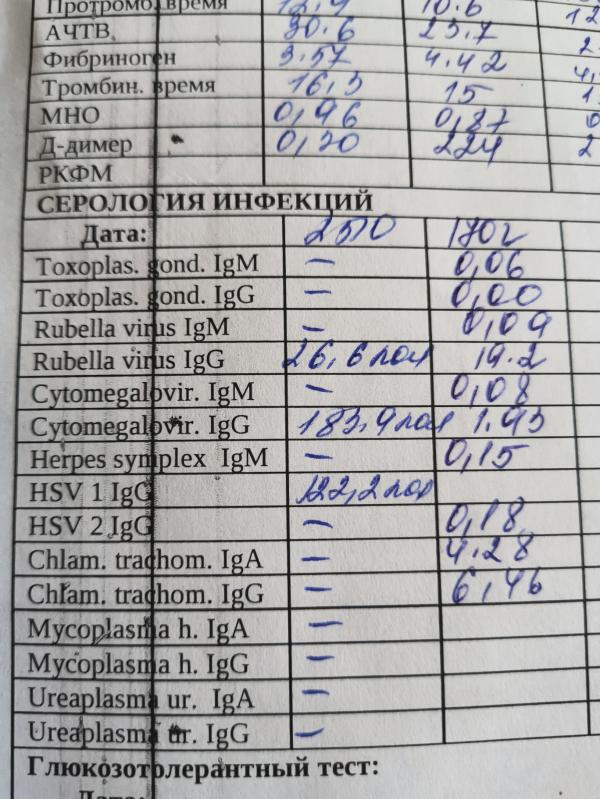 Протромб. время 12,4 10.6 12
АЧТВ 30.6 25.7
Фибриноген 3.57 4.42 4,
Тромбин. время 16,3 15 1
МНО 0,96 0,87 0
Д-димер 0,20 224 2
РКФМ
СЕРОЛОГИЯ ИНФЕКЦИЙ
Дата:
Toxoplas. gond. IgM — 0,06
Toxoplas. gond. IgG — 0,00
Rubella virus IgM — 0,09
Rubella virus IgG 26,6 пол 19.2
Cytomegalovir. IgM — 0,08
Cytomegalovir. IgG 183,9 пол 1.93
Herpes symplex IgM — 0,15
HSV 1 IgG 122,2 пол
HSV 2 IgG — 0,18
Chlam. trachom. IgA — 4.28
Chlam. trachom. IgG — 6,46
Mycoplasma h. IgA —
Mycoplasma h. IgG —
Ureaplasma ur. IgA —
Ureaplasma ur. IgG —
Глюкозотолерантный тест:
Дата: